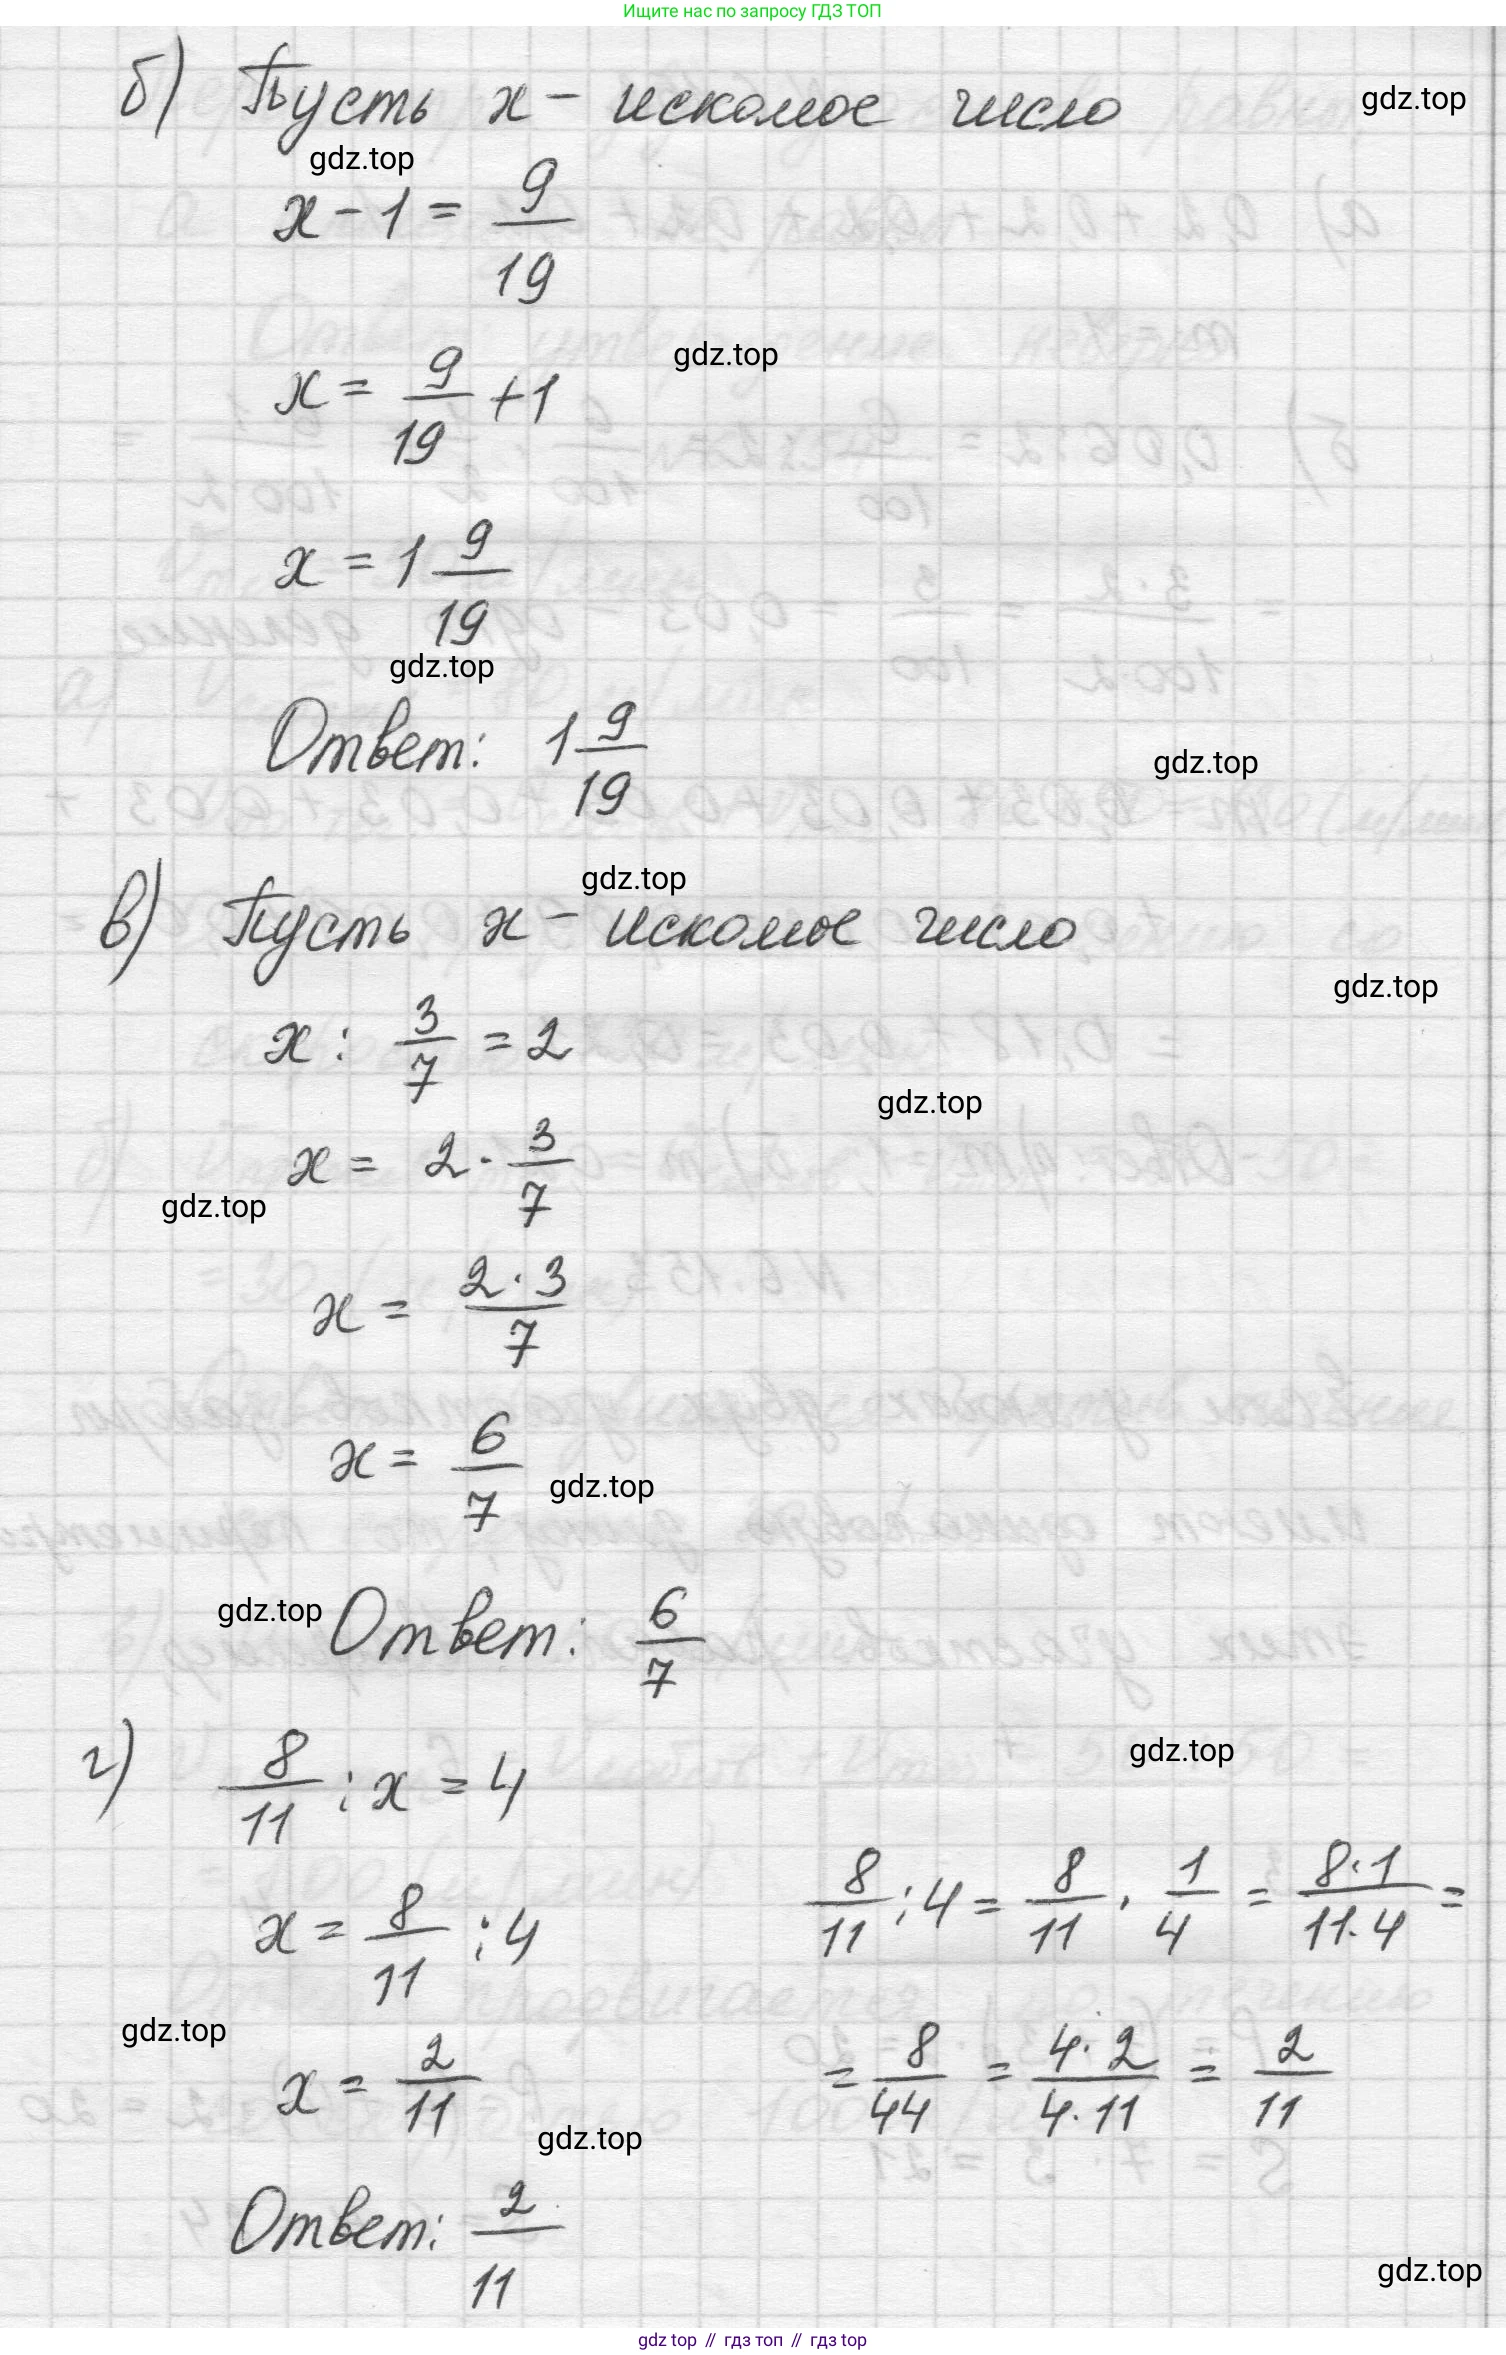 Ищите нас по запросу ГДЗ ТОП
б) Пусть x - искомое число
gdz.top
gdz.top
x - 1 = 9/19
x = 9/19 + 1
gdz.top
x = 1 9/19
gdz.top
Ответ: 1 9/19
gdz.top
gdz.top
в) Пусть x - искомое число
gdz.top
x : 3/7 = 2
gdz.top
x = 2 · 3/7
gdz.top
x = 2 · 3/7
x = 6/7
gdz.top
gdz.top
Ответ: 6/7
gdz.top
г) 8/11 : x = 4
x = 8/11 : 4
8/11 : 4 = 8/11 · 1/4 = 8·1/11·4 =
gdz.top
x = 2/11
= 8/44 = 4·2/4·11 = 2/11
gdz.top
Ответ: 2/11
gdz.top
gdz top // гдз топ // гдз top